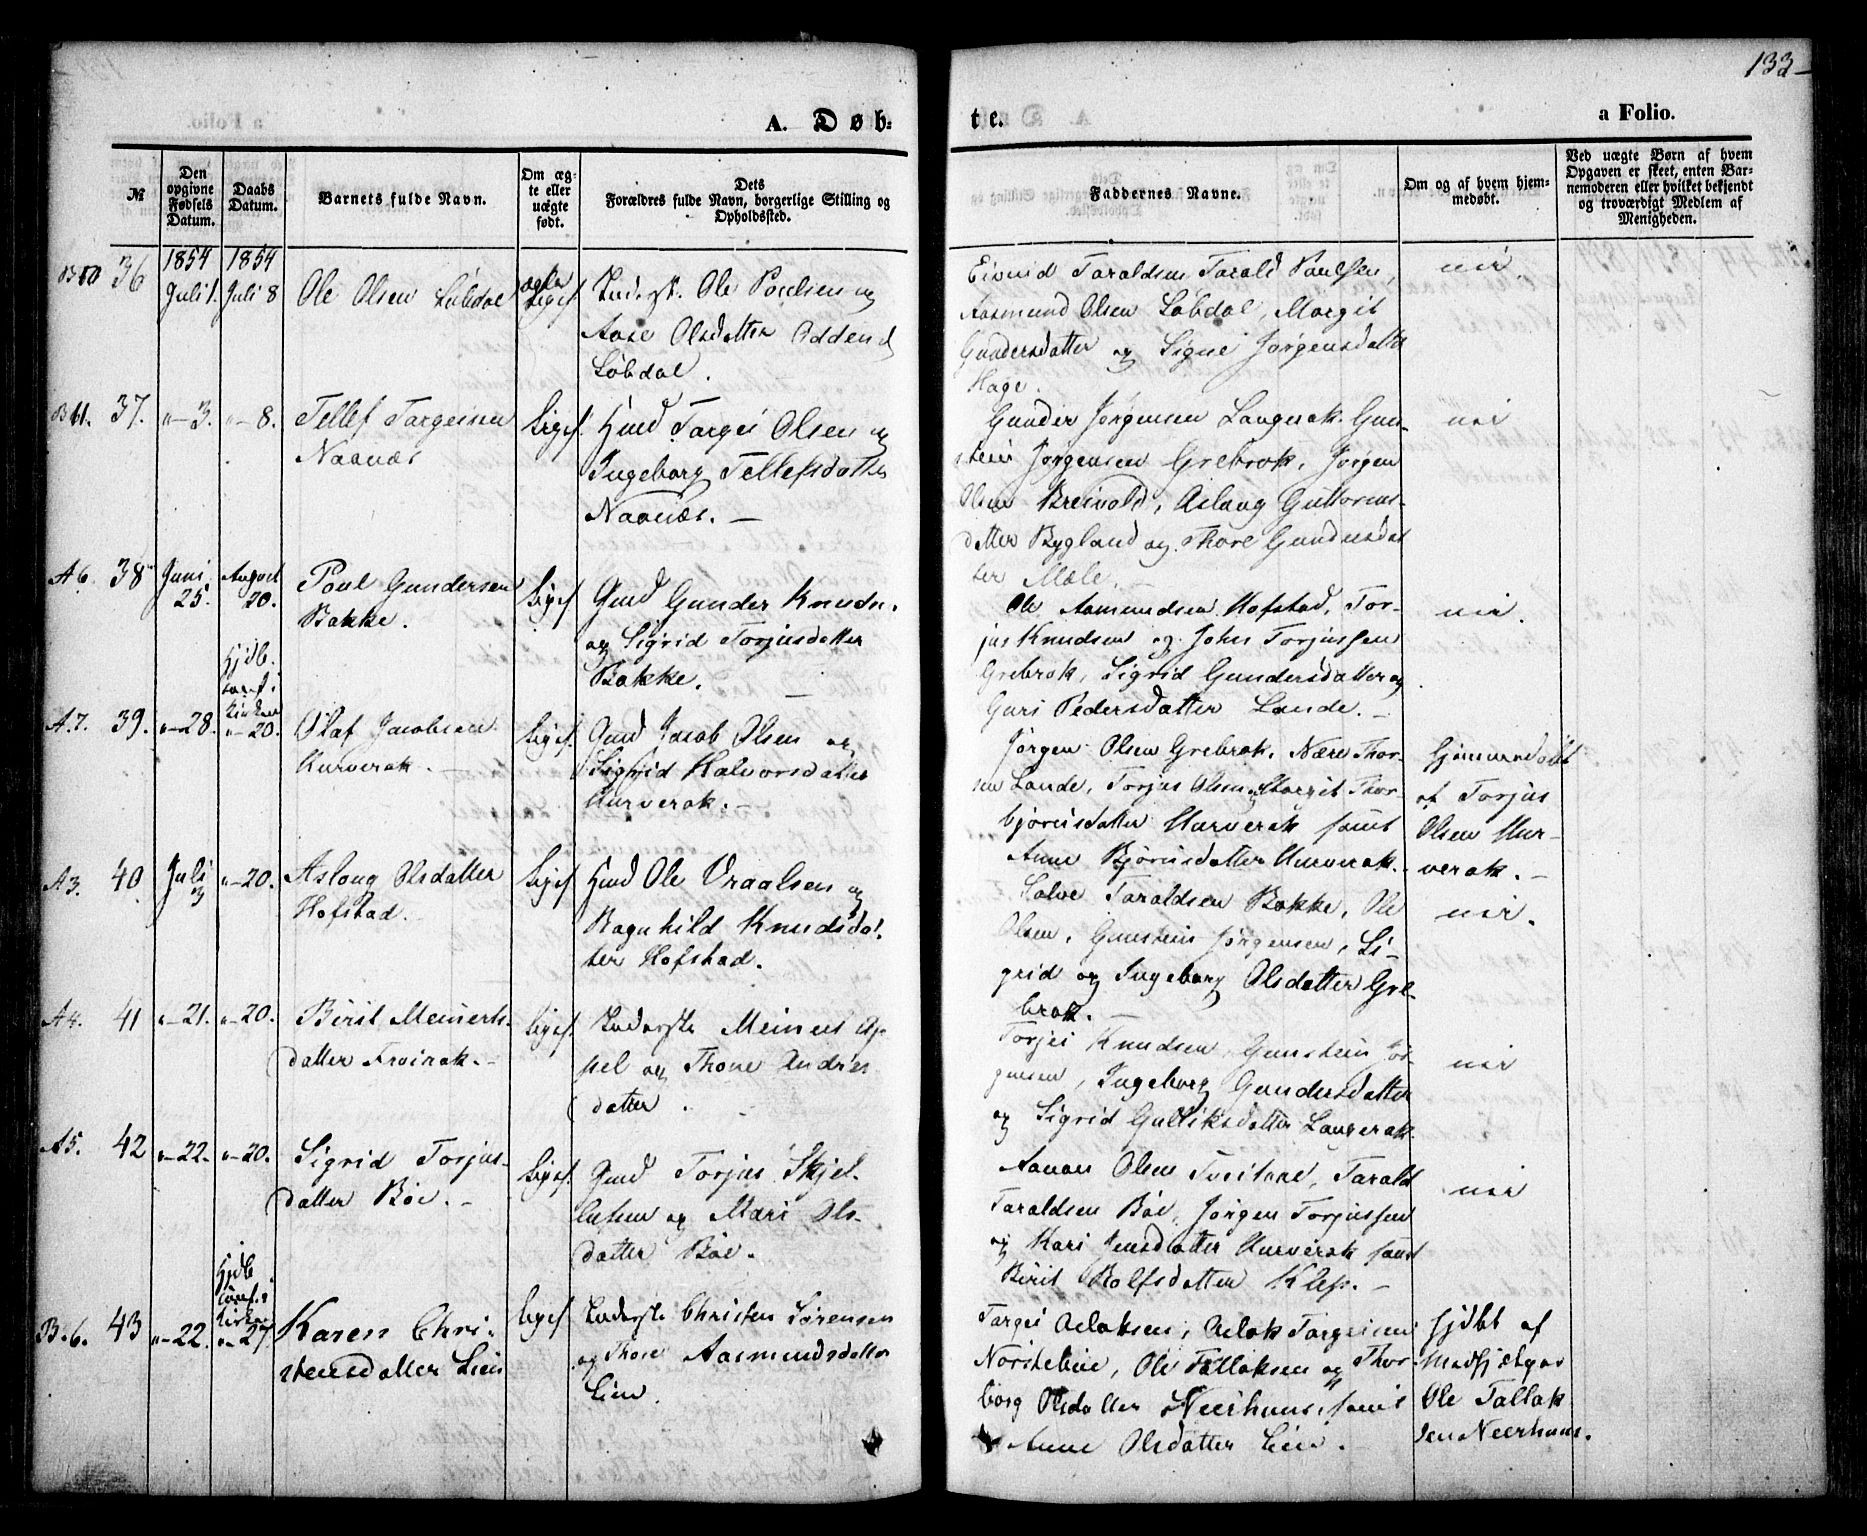 133
A. Døb-
te.
a Folio.
№
Den opgivne Fødsels Datum.
Daabs Datum.
Barnets fulde Navn.
Om ægte eller uægte født.
Dets Forældres fulde Navn, borgerlige Stilling og Opholdssted.
Faddernes Navne.
Om og af hvem hjemmedøbt.
Ved uægte Børn af hvem Opgaven er skeet, enten Barnemoderen eller hvilket bekjendt og troværdigt Medlem af Menigheden.
1854 1854
36 Juli 1. Juli 8
Ole Olsen Løbdal
ægte
Inderst. Ole Poulsen og
Aase Olsdatter Odden
Løbdal.
Eivind Taraldsen, Tarald Paulsen,
Aasmund Olsen Løbdal, Margit
Gundersdatter og Signe Jørgensdatter
Hage.
nei.
B 11. 37. "-3. "-8.
Tellef Targeisen
Naanæs
Ligesl.
Hmd Targei Olsen og
Ingeborg Tellefsdatter
Naanæs. -
Gunder Jørgensen Langerak, Gun-
stein Jørgensen Grebrok, Jørgen
Olsen Breivold, Aslaug Guttorms-
datter Bygland og Thore Gundersdat
ter Mæle. -
nei
A 6. 38 Juni 25. August 20.
Poul Gundersen
Bakke.
Ligesl
Gmd Gunder Knuds.
og Sigrid Torjusdatter
Bakke. -
Ole Aamundsen Hofstad, Tor-
jus Knudsen og John Torjussen
Grebrok, Sigrid Gundersdatter og
Guri Pedersdatter Lande. -
nei.
Hjdb.
conf. i
Kirken
A.7. 39. "-28. "-20.
Olaf Jacobsen
Hurverak. -
Ligesl.
Gmd Jacob Olsen og
Sigrid Halvorsdatter
Hurverak. -
Jørgen Olsen Grebrok, Nære Thor-
sen Lande, Torjus Olsen, Margit Thor-
bjørnsdatter Hurverak samt
Anne Bjørnsdatter Hurverak.
Hjemmedøbt
af Torjus
Olsen Hur-
verak. -
A3. 40 Juli 3 "-20.
Aslaug Olsdatter
Hofstad. -
Ligesl
Hmd Ole Vraalsen og
Ragnhild Knudsdat-
ter Hofstad.
Halve Taraldsen Bakke, Ole
Olsen, Gunstein Jørgensen, Si-
grid og Ingeborg Olsdatter Gre-
brok. -
nei.
A 4. 41 "-21. "-20.
Birit Meinerts-
datter Froirak. -
Ligesl.
Inderste Meinert Ap
pel og Thone Andrees
datter.
Torjei Knudsen, Gunstein Jør
gensen, Ingeborg Gundersdatter
og Sigrid Gulliksdatter Langerak.
nei
A5. 42 "-22. "-20.
Sigrid Torjus-
datter Bøe. -
Ligesl.
Gmd Torjus Skjel-
lulsen og Mari Ols-
datter Bøe.
Aanon Olsen Tveitane, Tarald
Taraldsen Bøe, Jørgen Torjussen
og Kari Jensdatter Hurverak samt
Birit Rolfsdatter Klep. -
nei
Hjdb
conf. i
Kirken
B. 6. 43 "-22. "-27.
Karen Chri-
stensdatter Lien
Ligesl
Inderste Christen Sørensen
og Thore Aasmundsdatter
Lien.
Targei Aslaksen, Aslak Targeisen
Nordstelien, Ole Tallaksen og Thor-
borg Olsdatter Neerhuus, samt
Anne Olsdatter Lien. -
Hjdbt af
Medhjelper
Ole Tallak
sen Neerhuus.